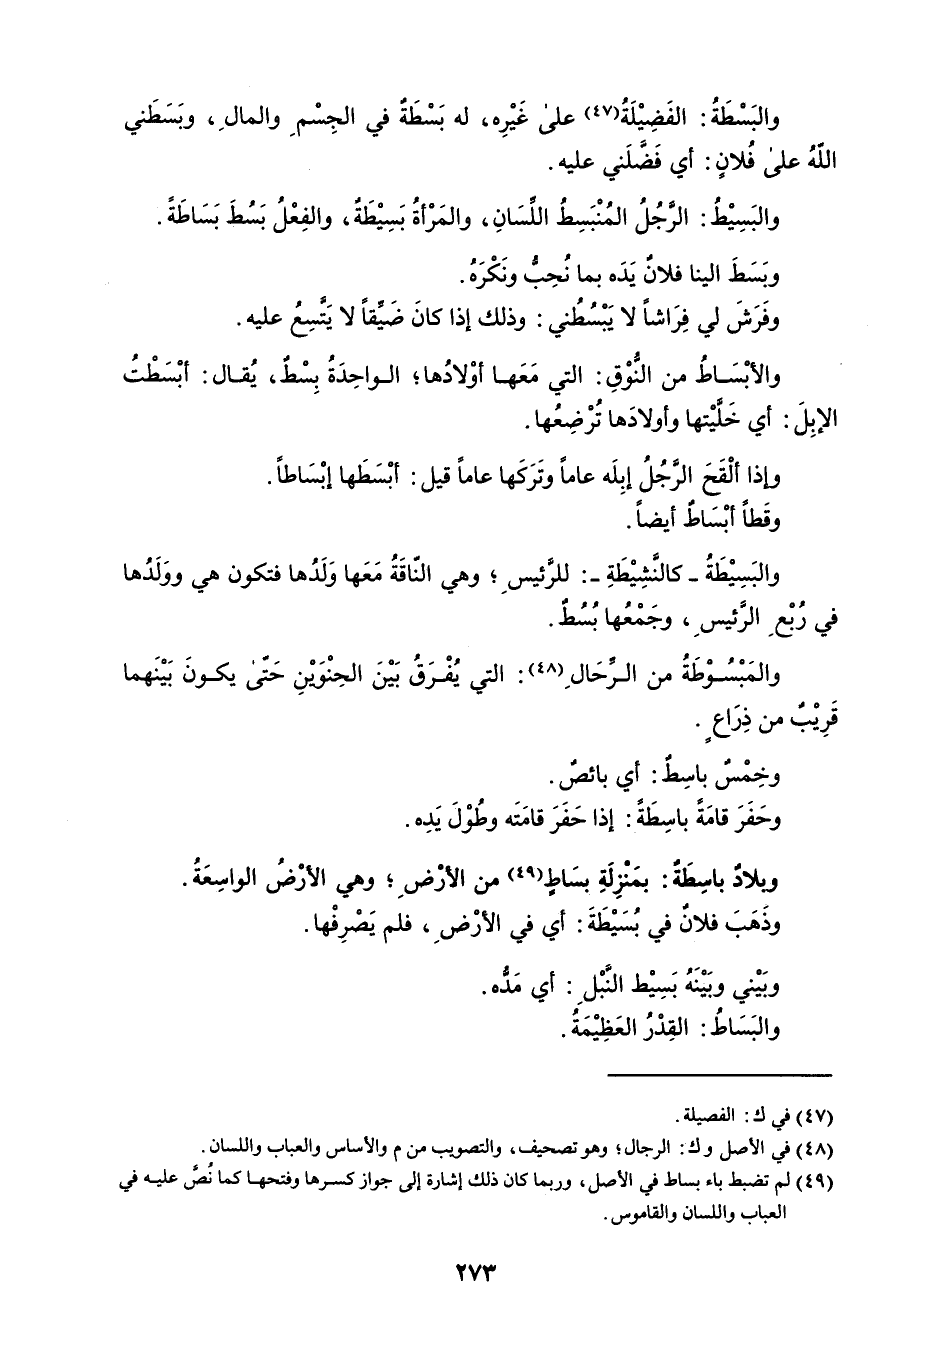 والبَسْطَةُ: الفَضِيْلَةُ(٤٧) علىٰ غَيْرِه، له بَسْطَةٌ في الجِسْمِ والمالِ، وبَسَطَني
اللّهُ علىٰ فُلانٍ: أي فَضَّلَني عليه.
والبَسِيْطُ: الرَّجُلُ المُنْبَسِطُ اللِّسَانِ، والمَرْأةُ بَسِيْطَةٌ، والفِعْلُ بَسُطَ بَسَاطَةً.
وبَسَطَ الينا فلانٌ يَدَه بما نُحِبُّ ونَكْرَهُ.
وفَرَشَ لي فِرَاشاً لا يَبْسُطُني: وذلك إذا كانَ ضَيِّقاً لا يَتَّسِعُ عليه.
والأبْسَاطُ من النُّوْقِ: التي مَعَها أوْلادُها؛ الواحِدَةُ بِسْطٌ، يُقال: أبْسَطْتُ
الإبِلَ: أي خَلَّيْتها وأولادَها تُرْضِعُها.
وإذا ألْقَحَ الرَّجُلُ إبِلَه عاماً وتَرَكَها عاماً قيل: أبْسَطَها إبْسَاطاً.
وقَطاً أبْسَاطٌ أيضاً.
والبَسِيْطَةُ ـ كالنَّشِيْطَةِ ـ: للرَّئيسِ؛ وهي النّاقَةُ مَعَها وَلَدُها فتكون هي ووَلَدُها
في رُبْعِ الرَّئيسِ، وجَمْعُها بُسُطٌ.
والمَبْسُوْطَةُ من الرِّحَالِ(٤٨): التي يُفْرَقُ بَيْنَ الحِنْوَيْنِ حَتّىٰ يكونَ بَيْنَهما
قَرِيْبٌ من ذِرَاعٍ.
وخِمْسٌ باسِطٌ: أي بائصٌ.
وحَفَرَ قامَةً باسِطَةً: إذا حَفَرَ قامَتَه وطُوْلَ يَدِه.
وبلادٌ باسِطَةٌ: بمَنْزِلَةِ بسَاطٍ(٤٩) من الأرْضِ؛ وهي الأرْضُ الواسِعَةُ.
وذَهَبَ فلانٌ في بُسَيْطَةَ: أي في الأرْضِ، فلم يَصْرِفْها.
وبَيْني وبَيْنَهُ بَسِيْط النَّبْلِ: أي مَدُّه.
والبَسَاطُ: القِدْرُ العَظِيْمَةُ.
(٤٧) في ك: الفصيلة.
(٤٨) في الأصل و ك: الرجال؛ وهو تصحيف، والتصويب من م والأساس والعباب واللسان.
(٤٩) لم تضبط باء بساط في الأصل، وربما كان ذلك إشارة إلى جواز كسرها وفتحها كما نُصَّ عليه في
العباب واللسان والقاموس.
٢٧٣